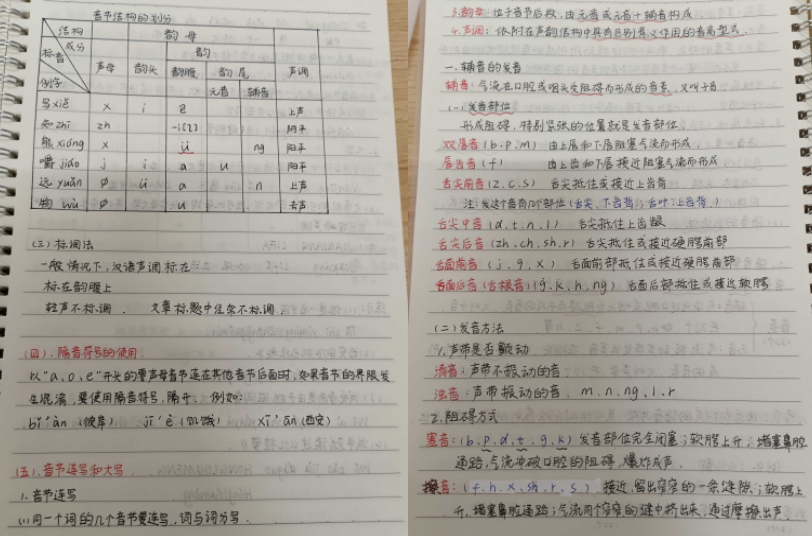 音节结构的划分
结构 成分 标音 例字 韵母
韵
声母 韵头 韵腹 韵尾 声调
元音 辅音
写xiě x i ê 上声
知zhī zh -i[ʅ] 阴平
熊xióng x ü ng 阳平
嚼jiáo j i a u 阳平
远yuǎn ø ü a n 上声
物wù ø u 去声
(三)标调法
一般情况下,汉语声调标在
标在韵腹上
轻声不标调. 文章标题中往常不标调.
(四).隔音符号的使用
以“a、o、e”开头的零声母音节连在其他音节后面时,如果音节的界限发
生混淆,要使用隔音符号,隔开. 例如:
bǐ'àn(彼岸) jī'è(饥饿) xī'ān(西安)
(五).音节连写和大写.
1.音节连写
(1)同一个词的几个音节要连写,词与词分写.
3.韵母:位于音节后段,由元音或元音+辅音构成
4.声调:依附在声韵结构中具有区别意义作用的音高型式.
一.辅音的发音
辅音:气流在口腔或咽头受阻碍而形成的音素,又叫子音
(一)发音部位
形成阻碍,特别紧张的位置就是发音部位
双唇音(b.p.m) 由上唇和下唇阻塞气流而形成.
唇齿音(f) 由上齿和下唇接近阻塞气流而形成
舌尖前音(z.c.s) 舌尖抵住或接近上齿背
注:发这个音有几个部位(舌尖、下齿背;舌叶:上齿背.)
舌尖中音(d.t.n.l) 舌尖抵住上齿龈
舌尖后音(zh.ch.sh.r) 舌尖抵住或接近硬腭前部
舌面前音(j.q.x) 舌面前部抵住或接近硬腭前部
舌面后音(舌根音)(g.k.h.ng) 舌面后部抵住或接近软腭
(二)发音方法
1.声带是否颤动
清音:声带不振动的音
浊音:声带振动的音. m.n.ng.l.r
2.阻碍方式
塞音:(b.p.d.t.g.k)发音部位完全闭塞;软腭上升,堵塞鼻腔
通路,气流冲破口腔的阻碍,爆炸成声.
擦音:(f.h.x.sh.r.s)接近,留出窄窄的一条缝隙;软腭上
升,堵塞鼻腔通路;气流从窄窄的缝中挤出来,通过摩擦出声